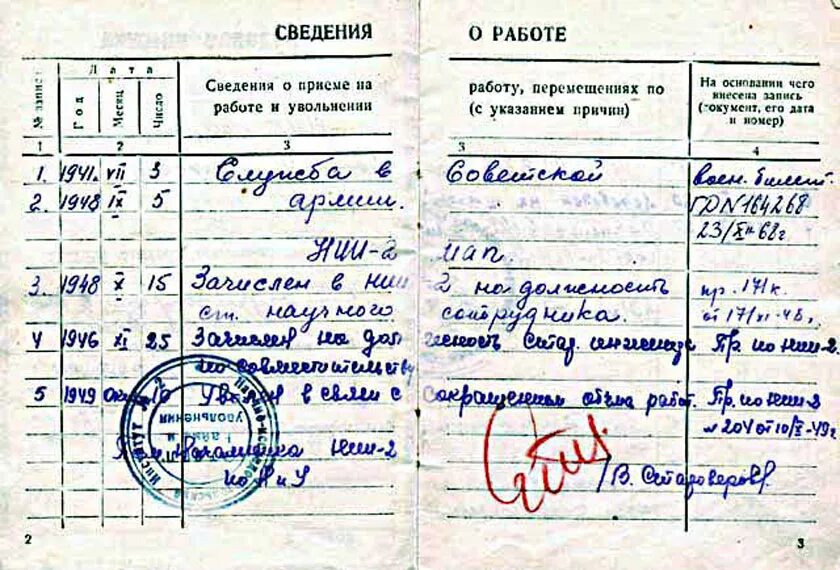 СВЕДЕНИЯ О РАБОТЕ
№ записи
Дата
Год
Месяц
Число
Сведения о приеме на работу, перемещениях по
работе и увольнении (с указанием причин)
На основании чего
внесена запись
(документ, его дата
и номер)
1 2 3 3 4
1. 1941. VII 3 Служба в Советской воен. билет.
2. 1948 IX 5 армии. ГД№164268
23/ 68г
НИИ-2 МАП.
3. 1948 X 15 Зачислен в НИИ-2 на должность пр. 171к.
ст. научного сотрудника. от 17/XI-48г.
4 1946 XI 25 Зачислен на должность Стар. инженера Пр. по НИИ-2.
по совместительству
5 1949 10 Уволен в связи с сокращением объема работ. Пр. по НИИ-2
№204 от 10/X-49г
Начальника НИИ-2
по Н и У
/В. Староверов/
2 3